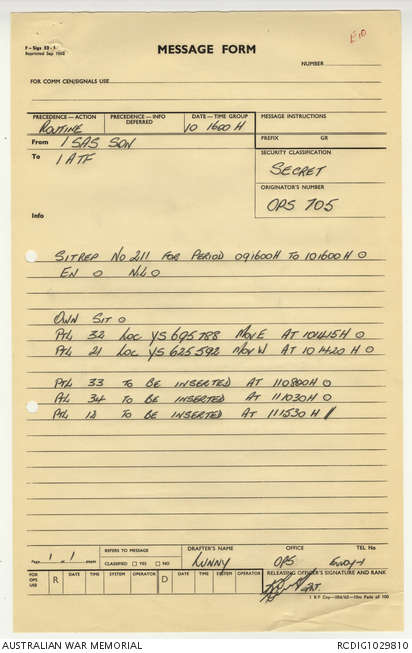 F-Sigs 52-1
Reprinted Sep 1965
MESSAGE FORM
E10
NUMBER
FOR COMM CEN/SIGNALS USE
PRECEDENCE—ACTION PRECEDENCE—INFO DEFERRED DATE—TIME GROUP MESSAGE INSTRUCTIONS
ROUTINE 10 1600 H
PREFIX GR
From 1 SAS SQN
To 1 ATF
SECURITY CLASSIFICATION
SECRET
ORIGINATOR'S NUMBER
OPS 705
Info
SITREP No 211 FOR PERIOD 091600H TO 101600H O
EN O NIL O
OWN SIT O
PTL 32 LOC YS 695788 MOV E AT 101415H O
PTL 21 LOC YS 625592 MOV W AT 101420H O
PTL 33 TO BE INSERTED AT 110800H O
PTL 34 TO BE INSERTED AT 111030H O
PTL 12 TO BE INSERTED AT 111530H //
Page 1 of 1 REFERS TO MESSAGE DRAFTER'S NAME OFFICE TEL No
CLASSIFIED YES NO LUNNY OPS
FOR OPS USE R DATE TIME SYSTEM OPERATOR D DATE TIME SYSTEM OPERATOR RELEASING OFFICER'S SIGNATURE AND RANK
AUSTRALIAN WAR MEMORIAL RCDIG1029810